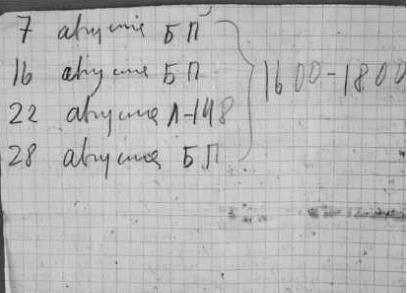 7 августа БП
16 августа БП
22 августа Л-148
28 августа БП
1600-1800